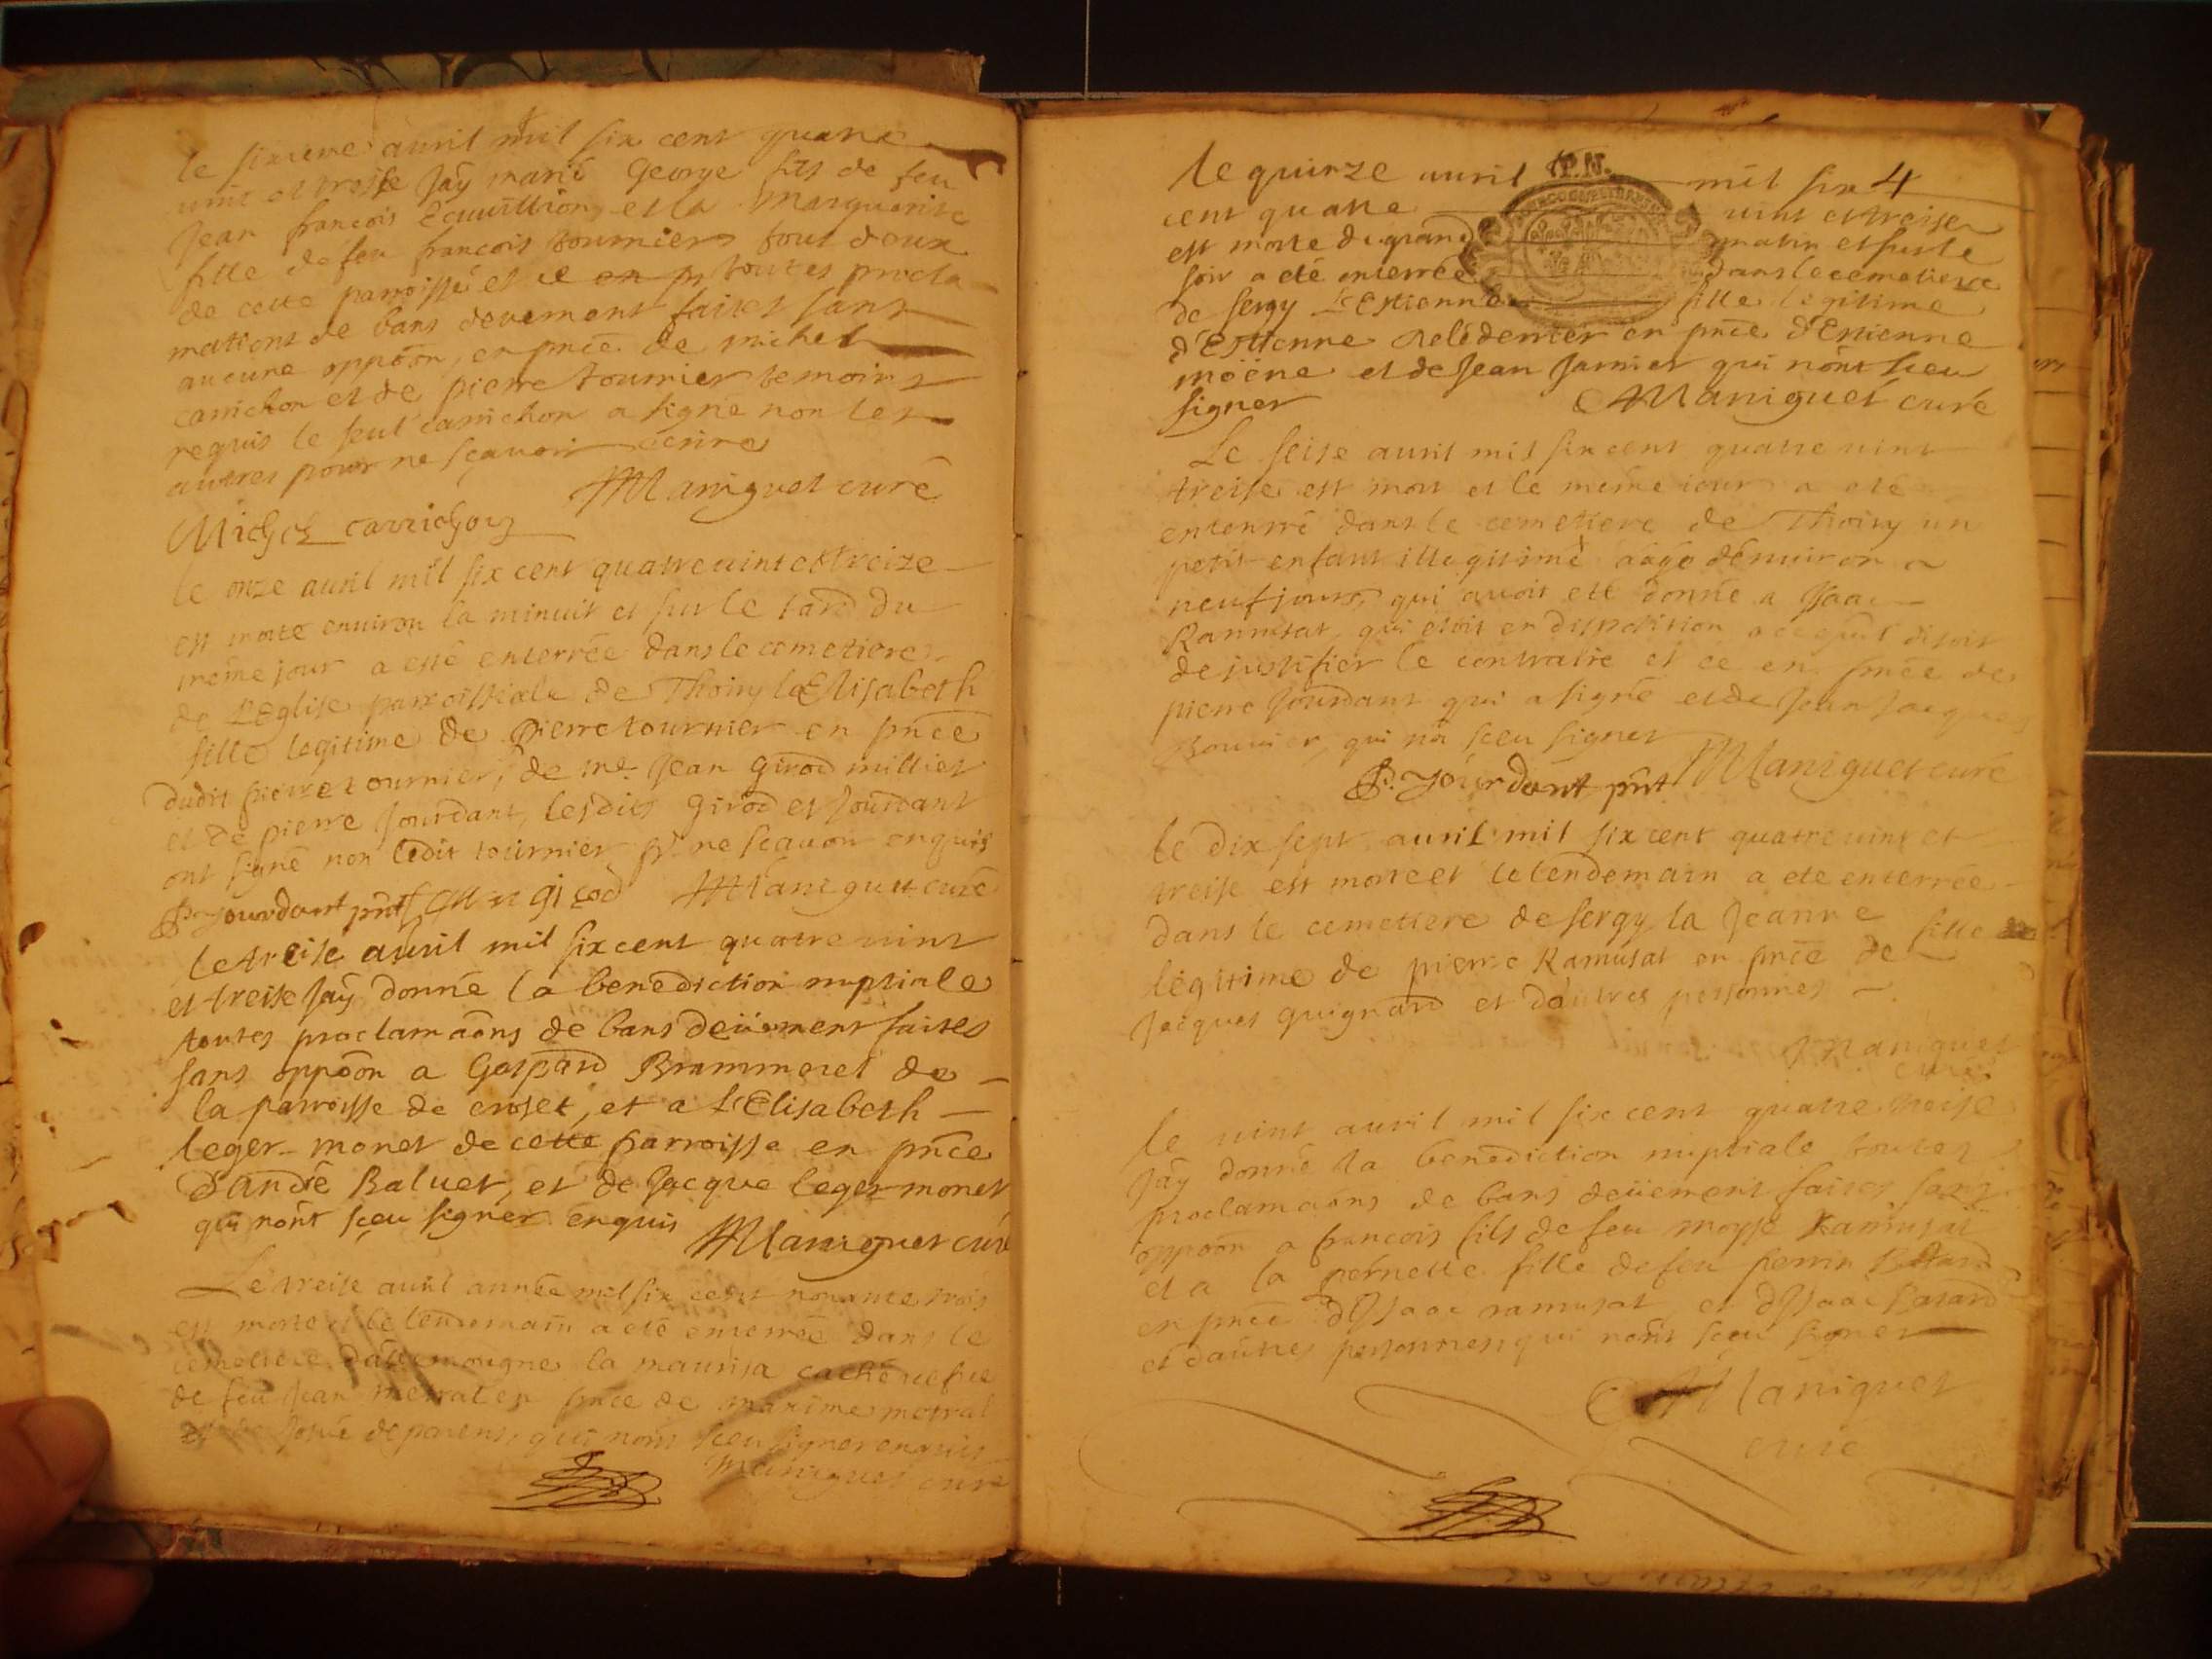 le sixieme avril mil six cent quatre
vint et treise Jay marié George fils de feu
Jean francois Ecuvillion, et la Marguerite
fille de feu francois tournier tout deux
de cette parroisse et ce en pr toutes procla-
mations de bans devement faites sans
aucune oppoôn, en pnce de michel
carrichon et de pierre tournier temoins
requis le seul carrichon a signé non les
autres pour ne sçavoir écrire
Maniguet curé
Michel carrichon
le onze avril mil six cent quatrevint et treize
est morte environ la minuit et sur le tard du
méme jour a esté enterrée dans le cemetiere
de L'Eglise parroissiale de Thoiry la Elisabeth
fille legitime de Pierre tournier en pnce
dudit pierre tournier, de me Jean Girod millier
et de pierre Jourdant, lesdits Girod et Jourdant
ont signé non ledit tournier pr ne scavoir enquis
P. Jourdant pnt Girod Maniguet curé
le treise avril mil six cent quatre vint
et treise Jay donné la benediction nuptiale
toutes proclamaôns de bans deüement faites
sans oppoôn a Gaspard Brammerel de
la parroisse de et a L'Elisabeth
leger-monet de cette parroisse en pnce
d'André Baluet, et de Jacque leger monet
qui nônt sçeu signer enquis Maniguet curé
Le treise avril année mil six cent nonante trois
est morte et le lendemain a eté enterrée dans le
cemetiere d'allemoigne la maurisa vefve
de feu Jean metral en pnce de maxime metral
et de deparens, qui nont sceu signer enquis
Maniguet curé
P.N.
le quinze avril mil six 4
cent quatre vint et treise
est morte du grand matin et sur le
soir a eté enterrée dans le cemetiere
de sergy L'Estienne fille legitime
d'Estienne en pnce d'Estienne
moëne et de Jean Jarnier qui nônt sceu
signer Maniguet curé
Le seise avril mil six cent quatre vint
treise est mort et le méme jour a eté
enterré dans le cemetiere de Thoiry un
petit enfant illegitime aagé d'environ
neuf jours, qui avoit eté donné a Isaac
Ramusat, qui etoit en disposition a ce qu'il disoit
de justifier le contraire et ce en pnce de
pierre Jourdant qui a signé et de Jean Jacques
Bouvier, qui n'a sceu signer
P. Jourdant pnt Maniguet curé
le dix sept avril mil six cent quatre vint et
treise est morte et le lendemain a eté enterrée
dans le cemetiere de sergy la Jeanne fille
légitime de pierre Ramusat en pnce de
Jacques quignard et dautres personnes
Maniguet
curé
le vint avril mil six cent quatre treise
Jay donné la benediction nuptiale toutes
proclamaôns de bans deüement faites sans
oppoôn a francois fils de feu moyse Ramusat
et a la pernette fille de feu
en pnce d'Isaac ramusat, et d'Isaac
et dautres personnes qui nont sceu signer
Maniguet
curé